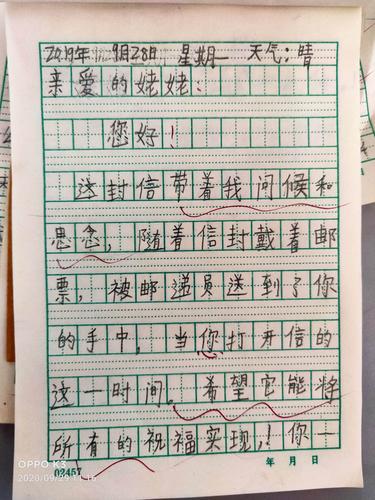 2019年9月28日 星期一 天气:晴
亲爱的姥姥:
您好!
这封信带着我问候和
思念,随着信封戴着邮
票,被邮递员送到了你
的手中,当你打开信的
这一时间。希望它能将
所有的祝福实现,!你一
02457 年 月 日
OPPO K3
2020/09/29 11:16